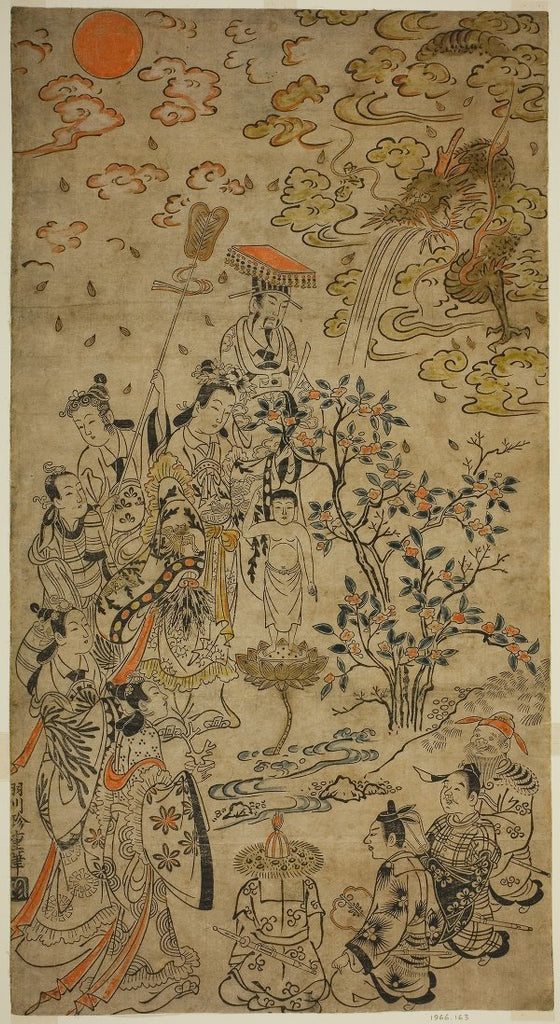 羽川珍重筆
1966.163